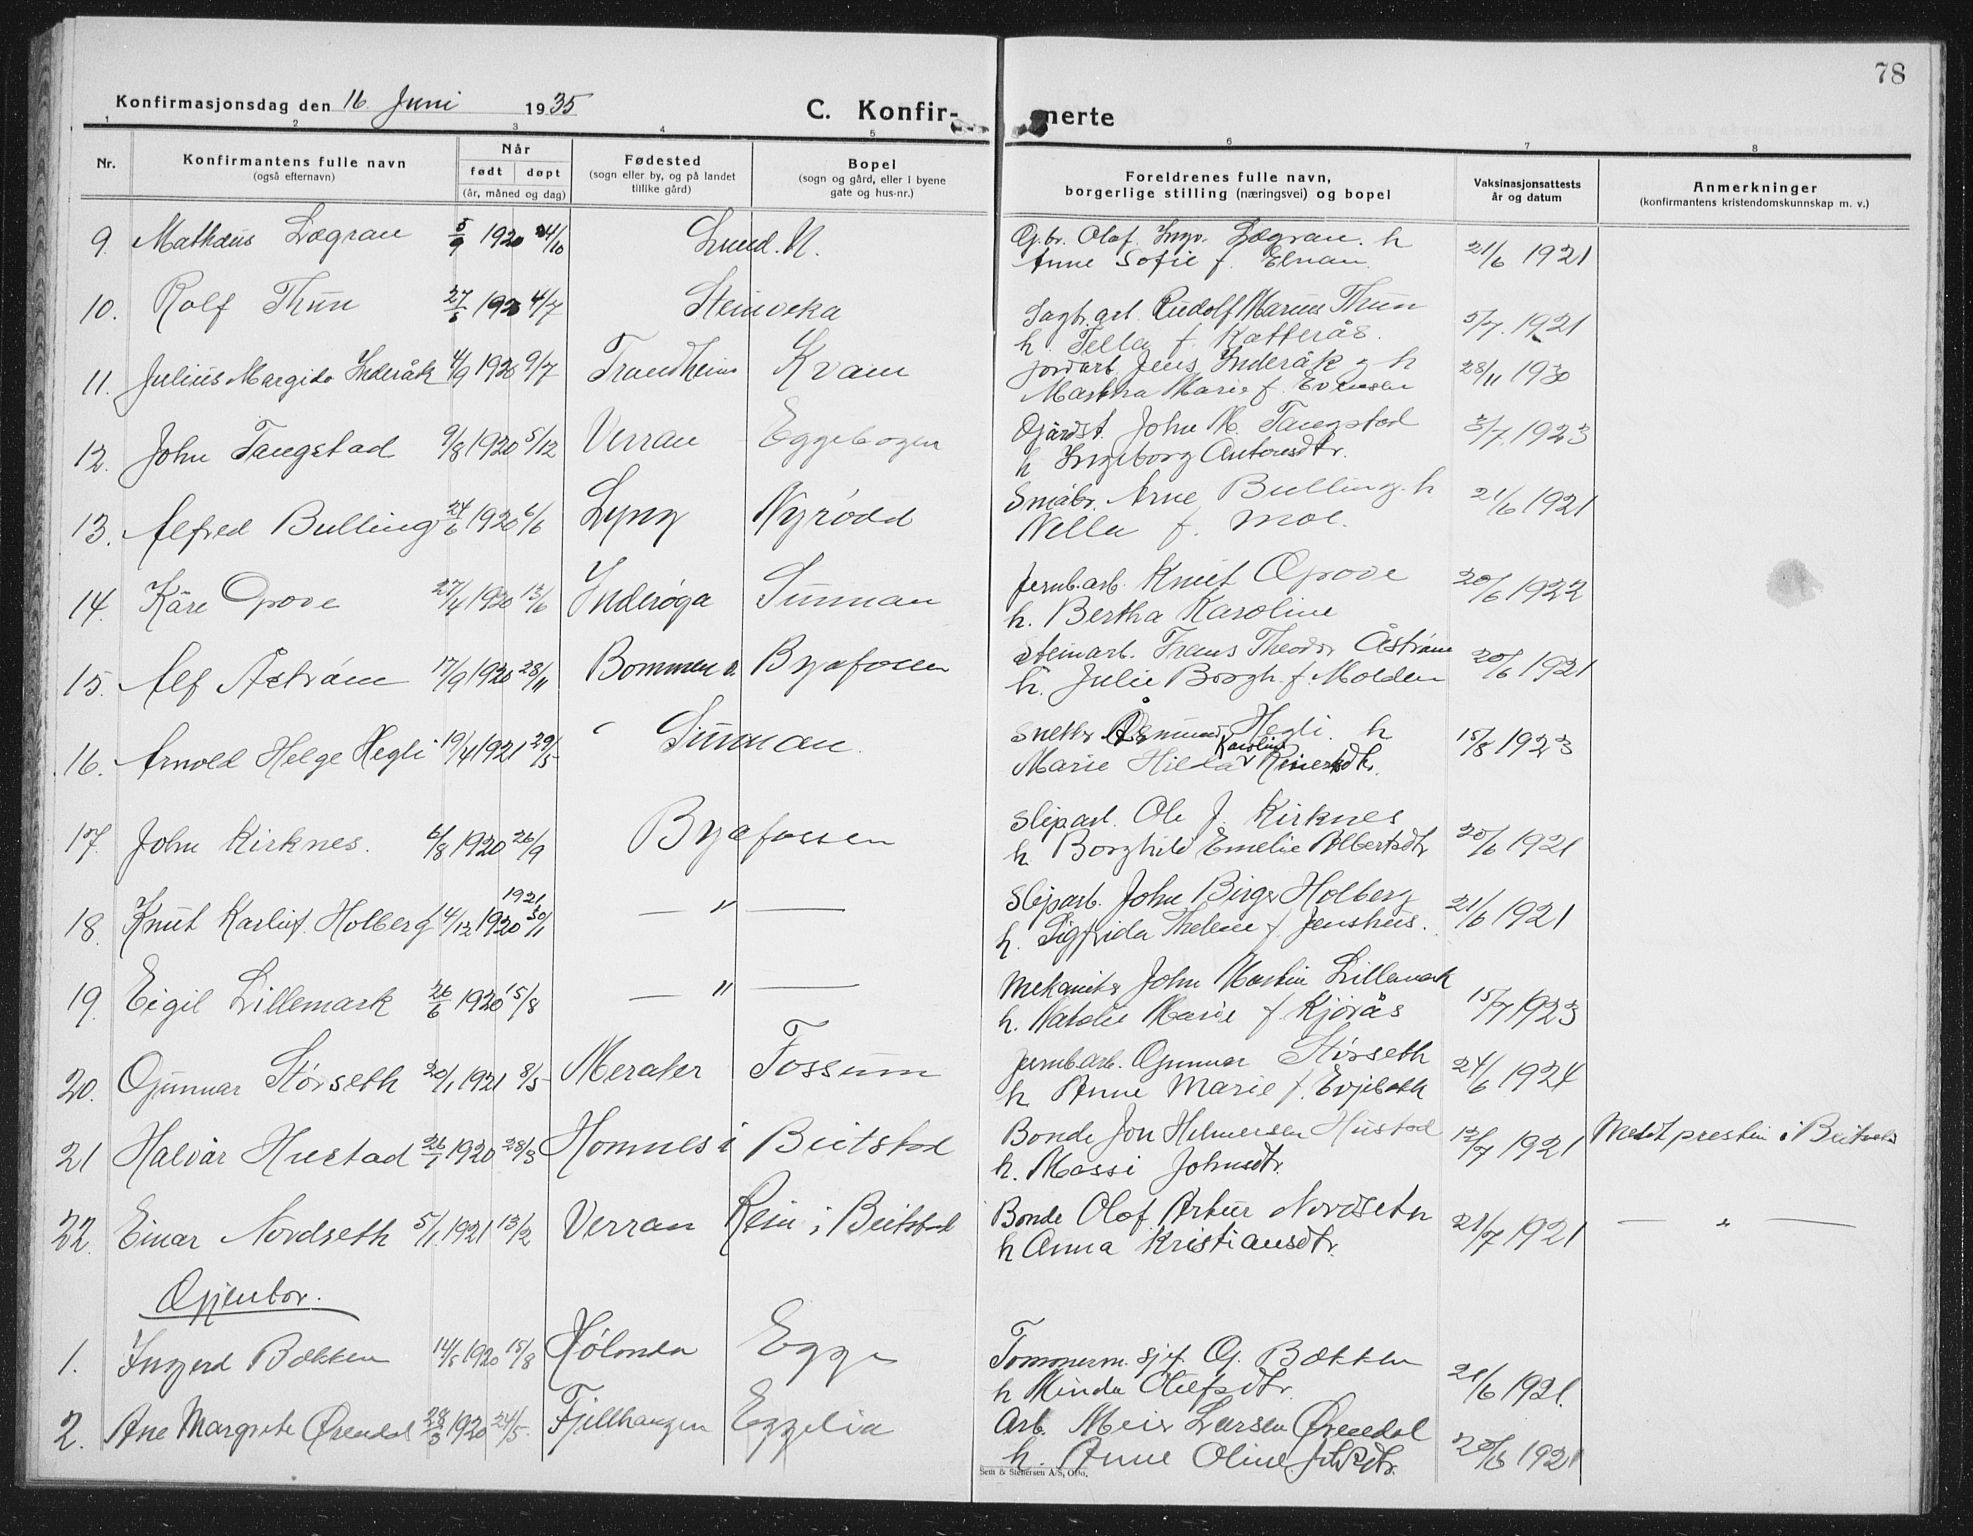 78
Konfirmasjonsdag den 16 Juni 1935 C. Konfir- merte
1 2 3 4 5 6 7 8
Nr. Konfirmantens fulle navn (også efternavn) Når født døpt (år, måned og dag) Fødested (sogn eller by, og på landet tillike gård) Bopel (sogn og gård, eller i byene gate og hus-nr.) Foreldrenes fulle navn, borgerlige stilling (næringsvei) og bopel Vaksinasjonsattests år og datum Anmerkninger (konfirmantens kristendomskunnskap m. v.)
9. Mathæus Lægran 5/9 1920 24/10 Lund. N. G.br. Olaf Ingv. Lægran. h 21/6 1921
Anne Sofie f. Elnan.
10. Rolf Thun 4/7 Steinveka Sagbr.arb. Rudolf Marius Thun 5/7. 1921
h. Tella f. Katterås.
11. Julius Margido Inderåk 4/9 1920 9/7 Trondheim Kvam Jordarb. Jens Inderåk og h 28/11 1930
Martha Marie f. Evensen
12. John Tangstad 9/8 1920 5/12 Verran Eggebogen Gårdst. John M. Tangstad 3/7. 1923
h Ingeborg Antonsdtr.
13. Alfred Bulling 24/6 1920 6/6 Lyng Nyrødd Småbr. Arne Bulling. h 21/6 1921
Nella f. Moe.
14. Kåre Opove 27/4 1920 13/6 Inderøya Sunnan Jernb.arb. Knut Opove 20/6 1922
h. Bertha Karoline
15. Alf Åstrøm 17/9 1920 28/11 Bommen v. Byafossen Steinarb. Frans Theodor Åstrøm 20/6 1921
h. Julie Borgh. f. Molden
16. Arnold Helge Hegli 19/4 1921 29/5 Sunnan. Snekker Åsmund Hegli. h 15/8 1923
Marie Hilda Karoline Reinertsdtr.
17. John Kirknes. 6/8 1920 26/9 Byafossen Sliparb. Ole J. Kirknes 20/6 1921
h. Borghild Emelie Albertsdtr
18. Knut Karluf Holberg 4/12 1920 1921 30/1 — " — Sliparb. John Birger Holberg 21/6 1921
h. Sigfrida Thelene f. Jenshus.
19. Eigil Lillemark 26/6 1920 15/8 — " — Mekaniker John Martin Lillemark 15/7 1923
h. Natalie Marie f. Kjøràs
20. Gunnar Størseth 20/1 1921 8/5 Meraker Fossum Jernb.arb. Gunnar Størseth 24/6 1924
h Anne Marie f. Evjebakk
21 Halvår Hustad 26/1 1920 28/3 Homnes i Beitstad Bonde Jon Helmersen Hustad 12/7 1921 Meldt presten i Beitstad
h. Massi Johnsdtr.
22. Einar Nordseth 5/1 1921 13/2 Verran Rein i Beitstad Bonde Olaf Artur Nordseth 21/7 1921 — " —
h Anna Kristiansdtr.
Gjentor.
1. Ingerd Bækken 14/5 1920 15/8 Hølonda Egge Tømmerm. sjef. G. Bækken 21/6 1921.
h Minda Olufsdtr.
2. Ane Margrete Ørendal 28/3 1920 24/5 Fjellhaugen Eggelia Arb. Meier Larsen Ørendal 1921
h. Anne Oline
Sem & Stenersen A/S, Oslo.